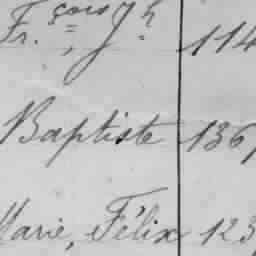 Fr.çois Jh. 114
Baptiste 136
Marie, Félix 123